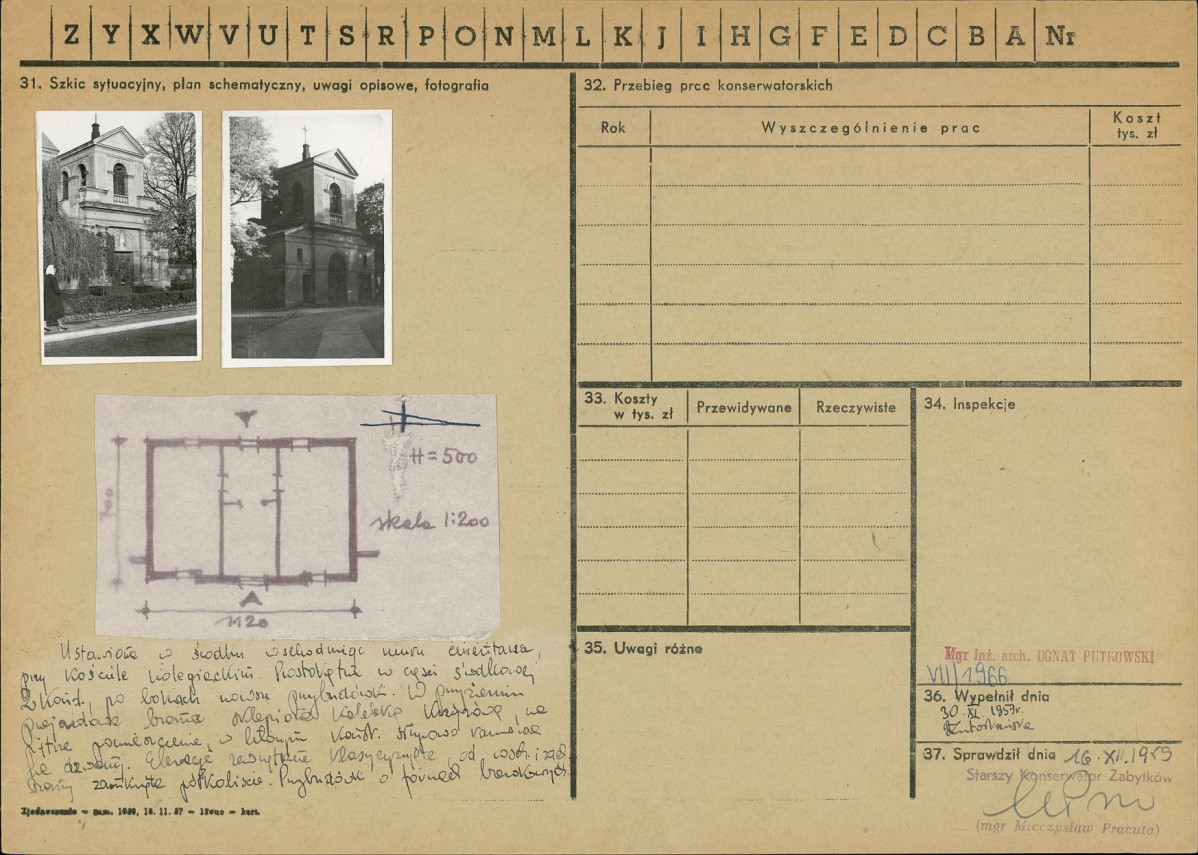 Z Y X W V U T S R P O N M L K J I H G F E D C B A Nr
31. Szkic sytuacyjny, plan schematyczny, uwagi opisowe, fotografia
H = 500
skala 1:200
700
1120
Ustawiona w środku wschodniego muru cmentarza,
przy kościele kolegiackim. Prostokątna w części środkowej
2 kond., po bokach nowsze przybudówki. W przyziemiu
przejazdowa brama sklepiona kolebką, na
piętrze pomieszczenie, w którym konstr.
na dzwony. Elewacje zewnętrzne klasycyzujące, od wsch. i zach.
bramy zamknięte półkoliście. Przybudówki o
Zjednoczenie — zam. 1030, 18. 11. 57 — — kart.
32. Przebieg prac konserwatorskich
Rok
Wyszczególnienie prac
Koszt
tys. zł
33. Koszty
w tys. zł
Przewidywane
Rzeczywiste
34. Inspekcje
Mgr inż. arch. DONAT PUTKOWSKI
VII/1966
35. Uwagi różne
36. Wypełnił dnia
30.XI 1959r.
37. Sprawdził dnia 16.XII.1959
Starszy Konserwator Zabytków
(mgr Mieczysław Pracuta)